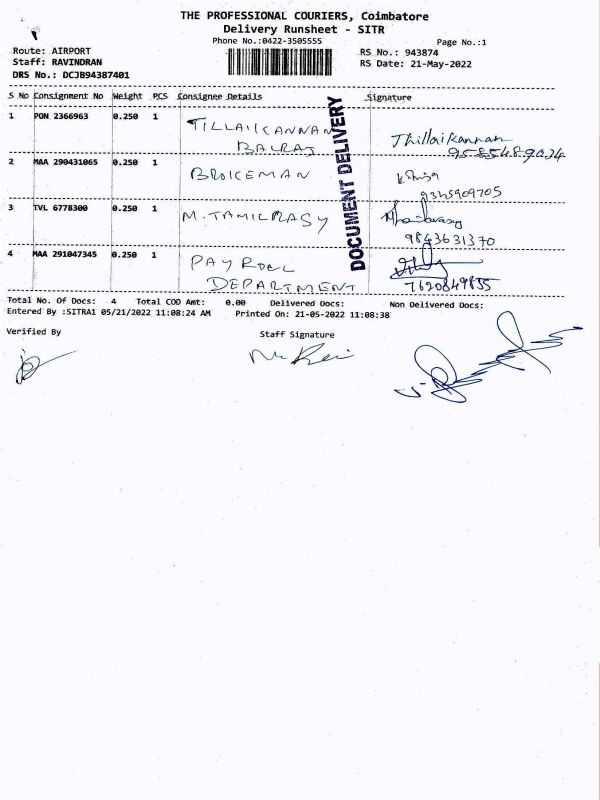 THE PROFESSIONAL COURIERS, Coimbatore
Delivery Runsheet - SITR
Phone No.:0422-3505555
Page No.:1
Route: AIRPORT
Staff: RAVINDRAN
DRS No.: DCJB94387401
RS No.: 943874
RS Date: 21-May-2022
S No Consignment No Weight PCS Consignee Details Signature
1 PON 2366963 0.250 1 TILLAIKANNAN
BALRAJ
Thillaikannan
2 MAA 290431065 0.250 1 BROICEMAN
9345909705
3 TVL 6778300 0.250 1 M.TAMILRASY
9843631370
4 MAA 291047345 0.250 1 PAY ROLL
DEPARTMENT
7620849855
DOCUMENT DELIVERY
Total No. Of Docs: 4 Total COD Amt: 0.00 Delivered Docs: Non Delivered Docs:
Entered By :SITRA1 05/21/2022 11:08:24 AM Printed On: 21-05-2022 11:08:38
Verified By Staff Signature